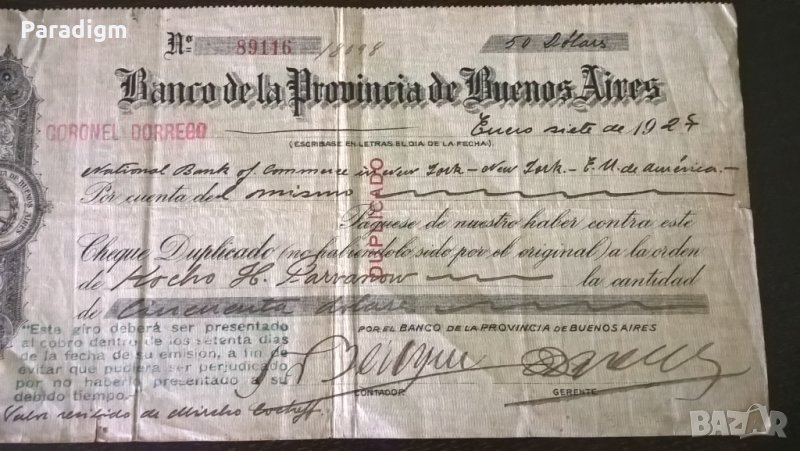 Paradigm
Nº 89116 / 8098 50 Dólars
Banco de la Provincia de Buenos Aires
CORONEL DORREGO Enero siete de 1927
(ESCRIBASE EN LETRAS EL DIA DE LA FECHA)
National Bank of Commerce in New York - New York - E. U. de América.-
Por cuenta del mismo
Páguese de nuestro haber contra este
Cheque Duplicado (no habiéndolo sido por el original) a la orden
de Kocho H. Parvanow la cantidad
de cincuenta dólars
DUPLICADO
"Este giro deberá ser presentado
al cobro dentro de los setenta días
de la fecha de su emisión, a fin de
evitar que pudiera ser perjudicado
por no haberlo presentado a su
debido tiempo."
POR EL BANCO DE LA PROVINCIA DE BUENOS AIRES
CONTADOR GERENTE
Valor recibido de Mircho
BAZAR